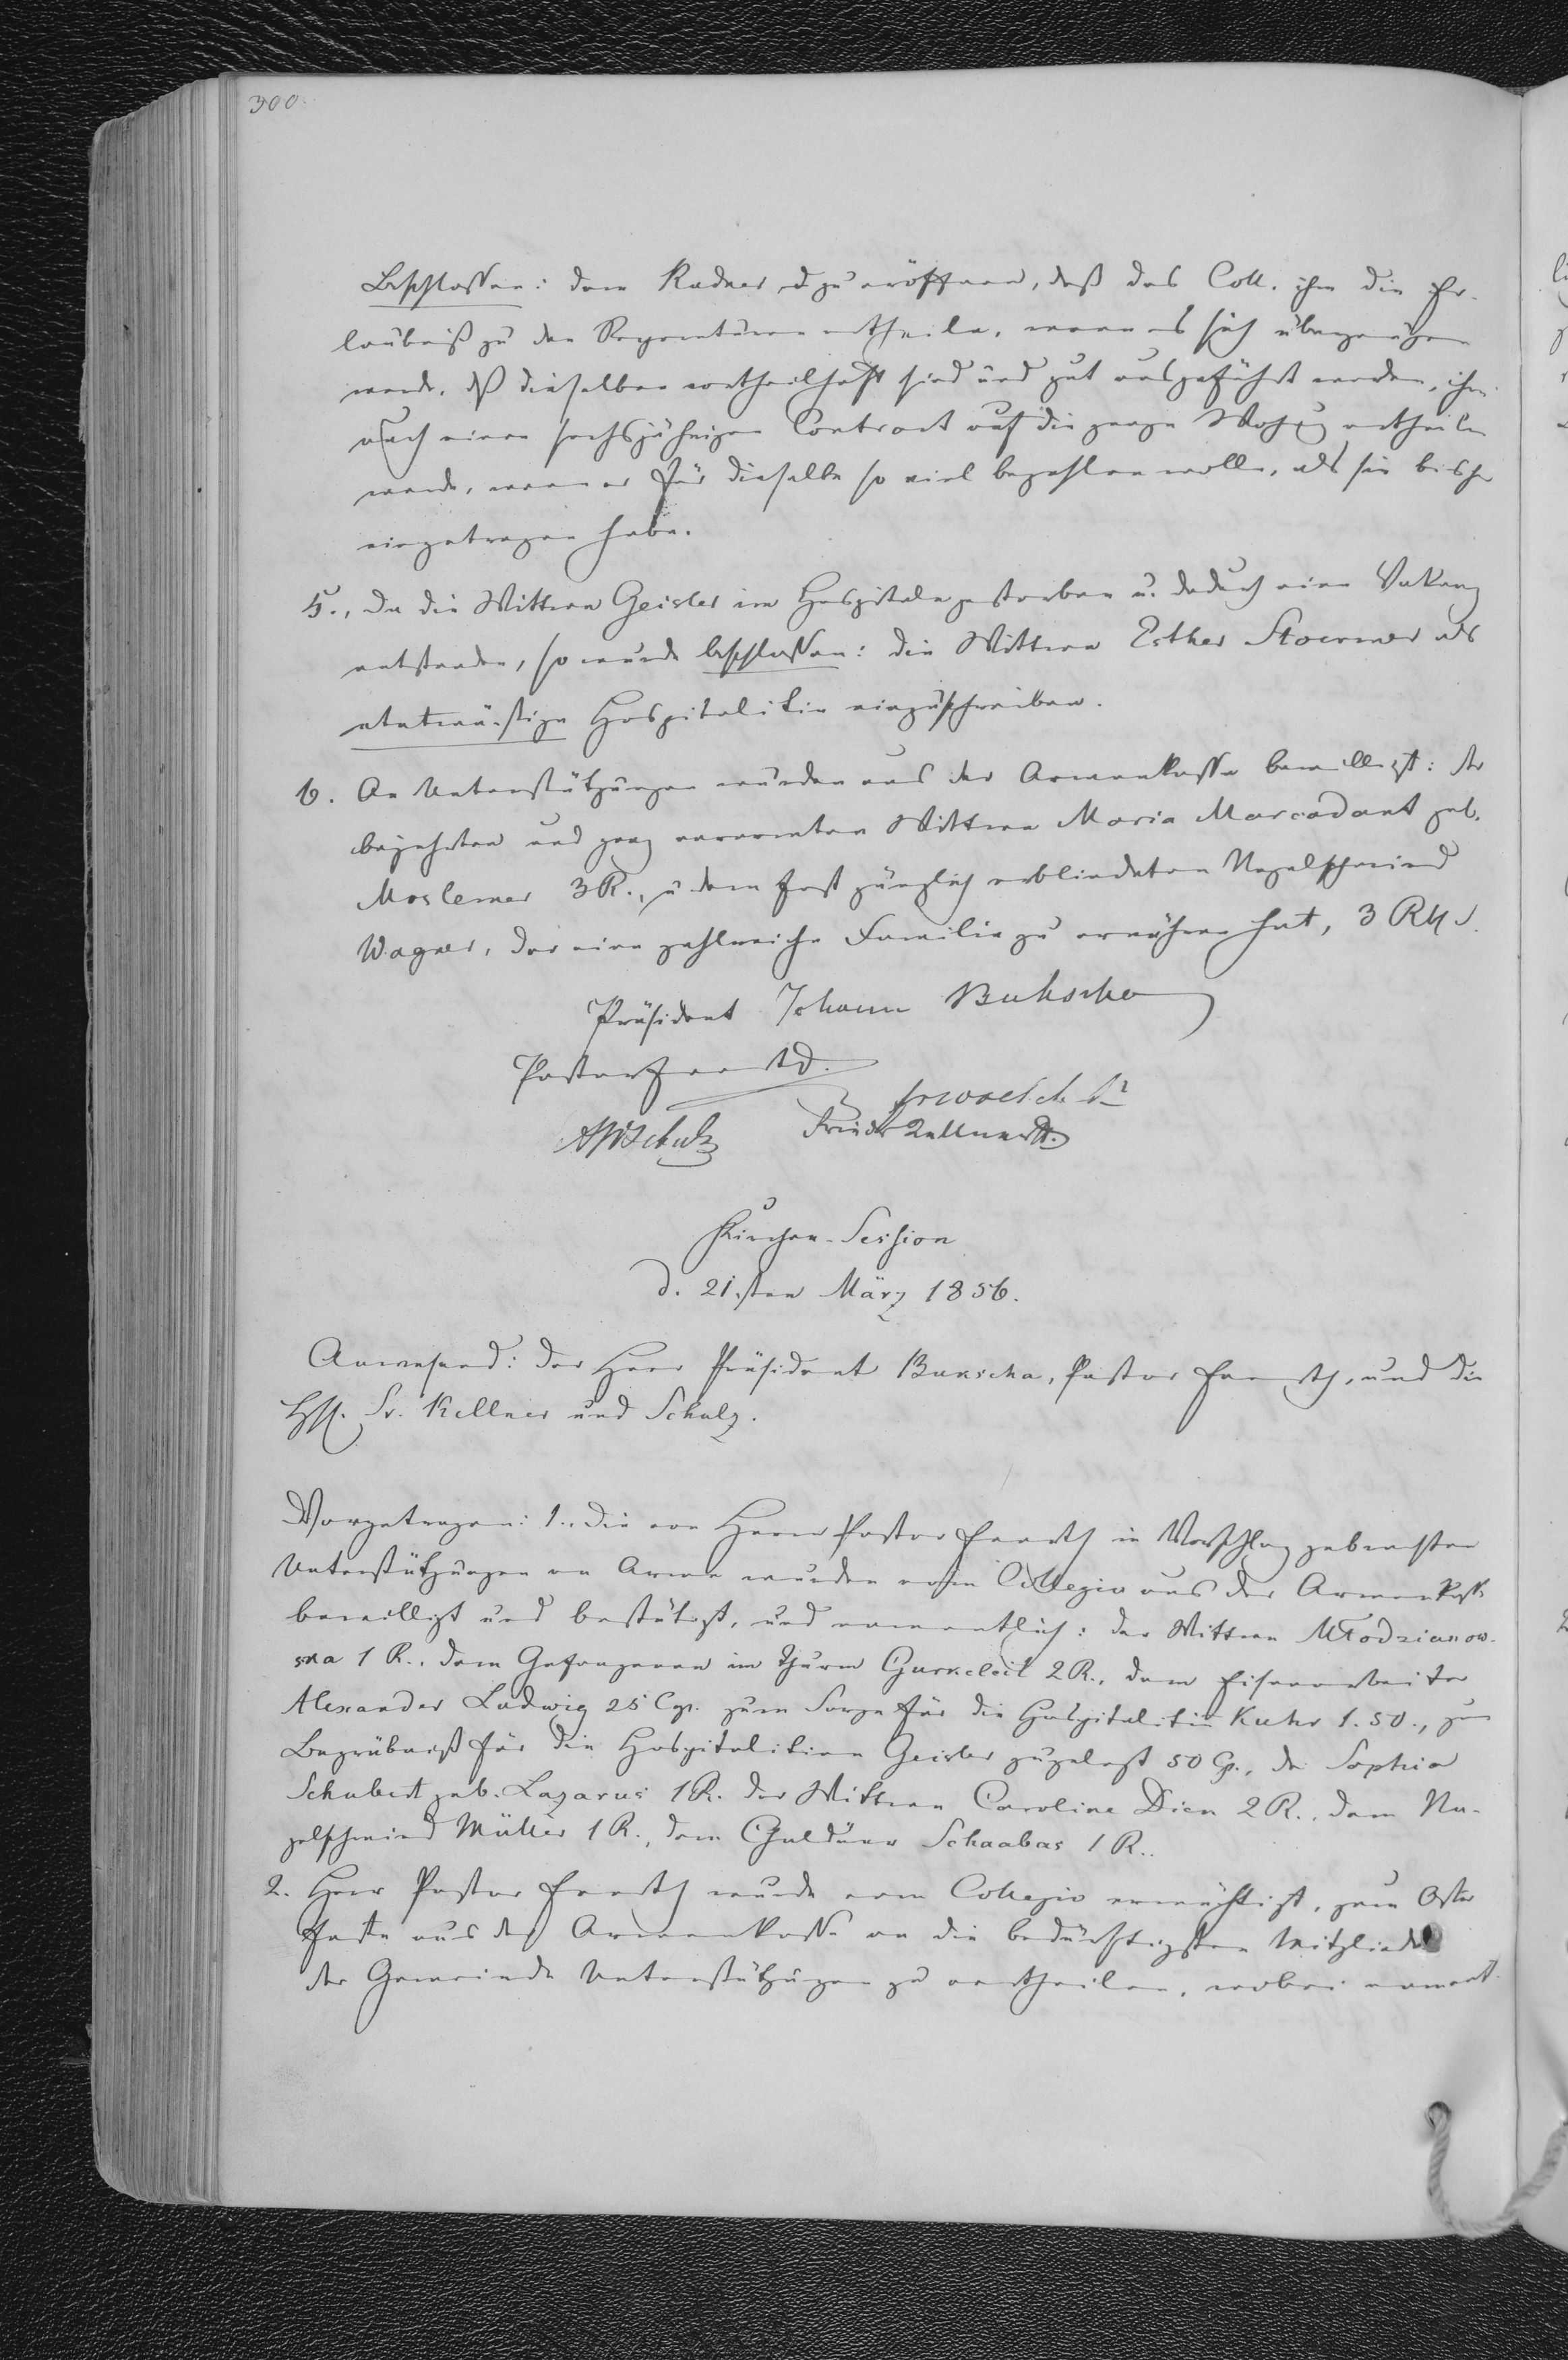 300.
Beschlossen: dem Radner zu eröffnen, daß das Coll. ihm die Er-
laubniß zu den Reparaturen ertheile, wenn es sich überzeugen
werde, dß dieselben vortheilhaft sind und gut ausgeführt werden, ihm
auch einen sechsjährigen Contract auf die ganze ertheilen
werde, wenn er für dieselbe so viel bezahlen wolle, als sie bisher
eingetragen habe.
5., Da die Wittwe Geisler im Hospitale gestorben u. dadurch eine Vakanz
entstanden, so wurde beschlossen: die Wittwe Esther Stoermer als
etatmäßige Hospitalitin einzuschreiben.
6. An Unterstützungen wurden aus der Armenkasse bewilligt: der
bejahrten und ganz verarmten Wittwe Maria Marcadant geb.
Moslemer 3 R., u dem fast gänzlich erblindeten Nagelschmied
Wagner, der eine zahlreiche Familie zu ernähren hat, 3 R
Präsident Johann Bukscha
Pastor
Schulz Kellner
Kirchen-Session
d. 21sten März 1856.
Anwesend: der Herr Präsident Bukscha, Pastor und die
HH. Sr. Kellner und Schulz.
Vorgetragen: 1., die von Herrn Pastor in Vorschlag gebrachten
Unterstützungen an Arme wurden vom Collegio aus der Armenkasse
bewilligt und bestätigt, und namentlich: der Wittwe Młodzianow-
ska 1 R., dem Gefangenen im Thurm Gurkeleit 2 R., dem Eisenarbeiter
Alexander Ludwig 25 Cop. zum Sarge für die Hospitalitin Kuhr 1.50., zum
Begräbniß für die Hospitalitin Geisler zugelegt 50 Cp., der Sophia
Schubert geb. Lazarus 1 R. der Wittwe Caroline Dien 2 R., dem Na-
gelschmied Müller 1 R., dem Schaabas 1 R..
2. Herr Pastor wurde vom Collegio ermächtigt, zum Oster
feste aus der Armenkasse an die bedürftigsten Mitglieder
der Gemeinde Unterstützungen zu vertheilen, wobei nament-